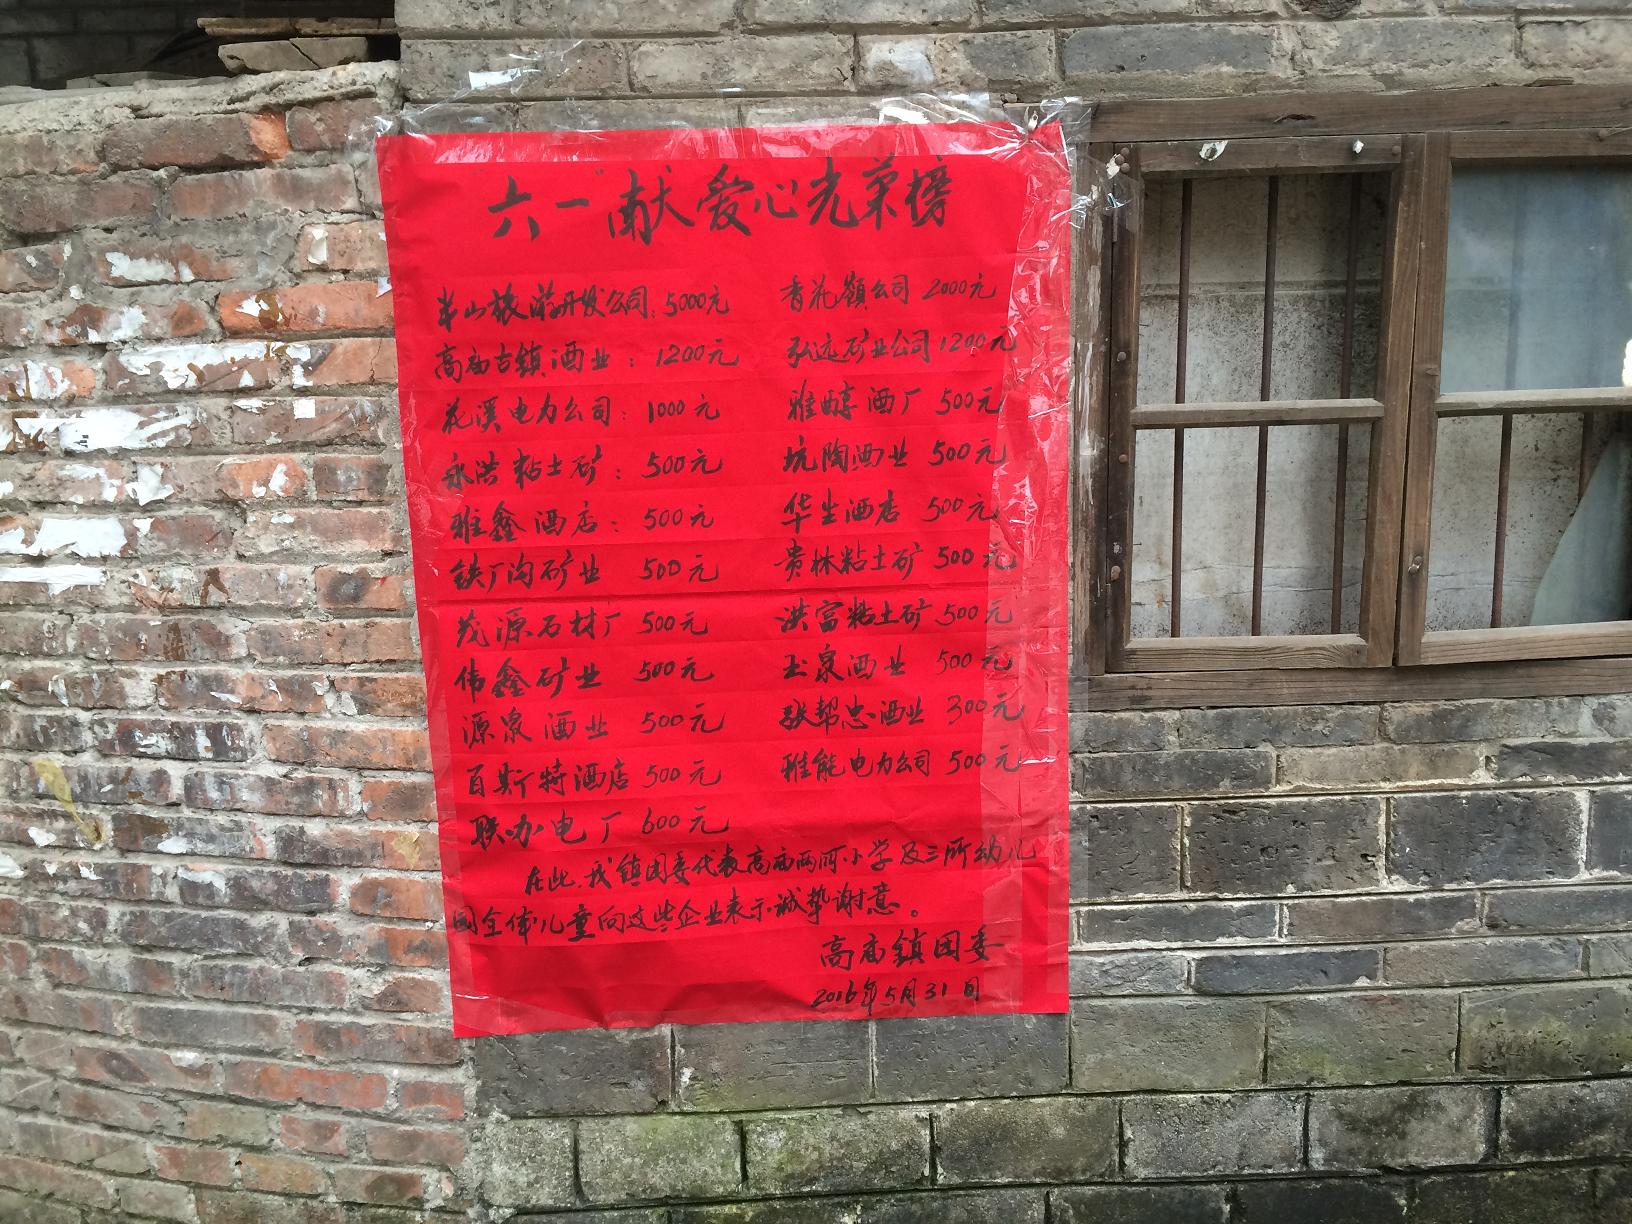 "六一"献爱心光荣榜
半山旅游开发公司:5000元 香花嶺公司 2000元
高庙古镇酒业:1200元 弘远矿业公司1200元
花溪电力公司:1000元 雅醇酒厂 500元
永洪粘土矿:500元 坑陶酒业 500元
雅鑫酒店:500元 华生酒店 500元
铁厂沟矿业 500元 贵林粘土矿 500元
茂源石材厂 500元 洪富粘土矿 500元
伟鑫矿业 500元 玉泉酒业 500元
源泉酒业 500元 张帮忠酒业 300元
百斯特酒店 500元 雅能电力公司 500元
联办电厂 600元
在此,我镇团委代表高庙两河小学及三所幼儿
园全体儿童向这些企业表示诚挚谢意。
高庙镇团委
2016年5月31日